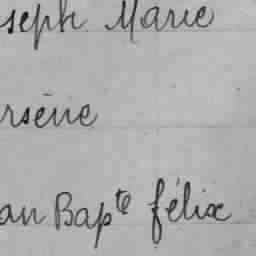 seph Marie
rsène
an Bapte félix